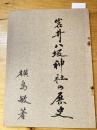 岩井八坂神社の歴史
槇島敏著